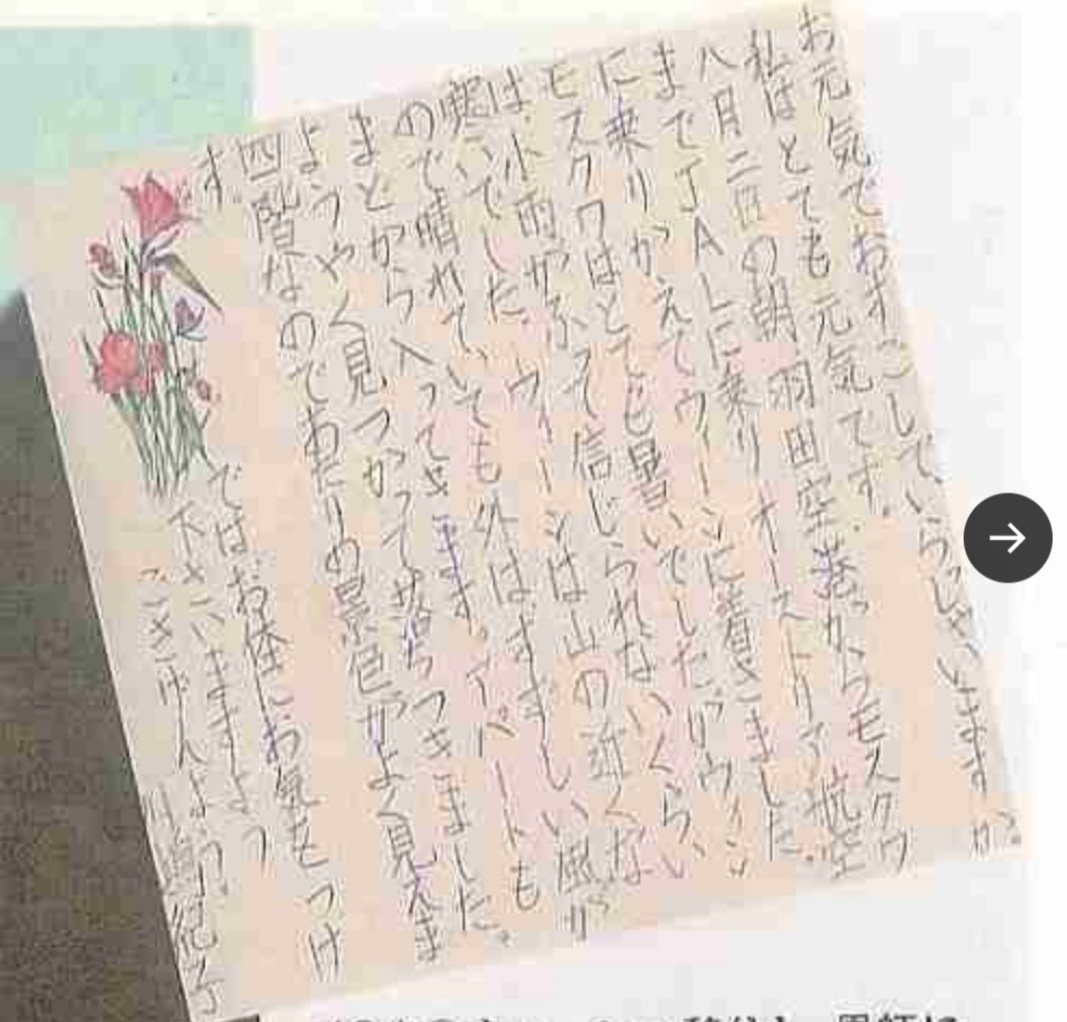 お元気でおすごしていらっしゃいますか。
私はとても元気です。
八月二日の朝羽田空港からモスクワ
までJALに乗り オーストリア航空
に乗りかえてウィーンに着きました。
モスクワはとても暑いでしたがウィーン
は、小雨がふって信じられないくらい
寒いでした。ウィーンは山の近くな
ので晴れていても外はすずしい風が
まどから入ってきます。アパートも
ようやく見つかって落ちつきました。
四階なのであたりの景色がよく見えま
す。
ではお体にお気をつけ
下さいますよう
ごきげんよう。川嶋紀子